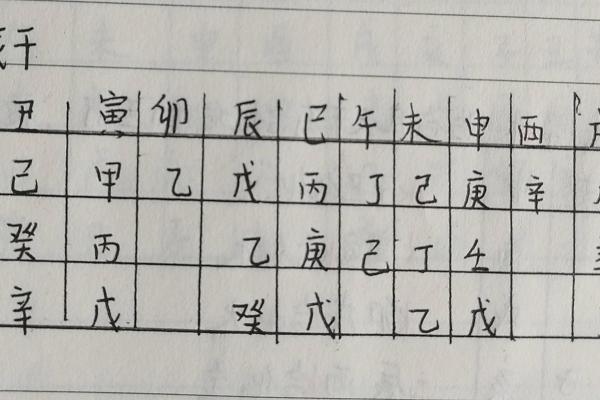 干
丑 寅 卯 辰 巳 午 未 申 酉
己 甲 乙 戊 丙 丁 己 庚 辛
癸 丙 乙 庚 己 丁 壬
辛 戊 癸 戊 乙 戊